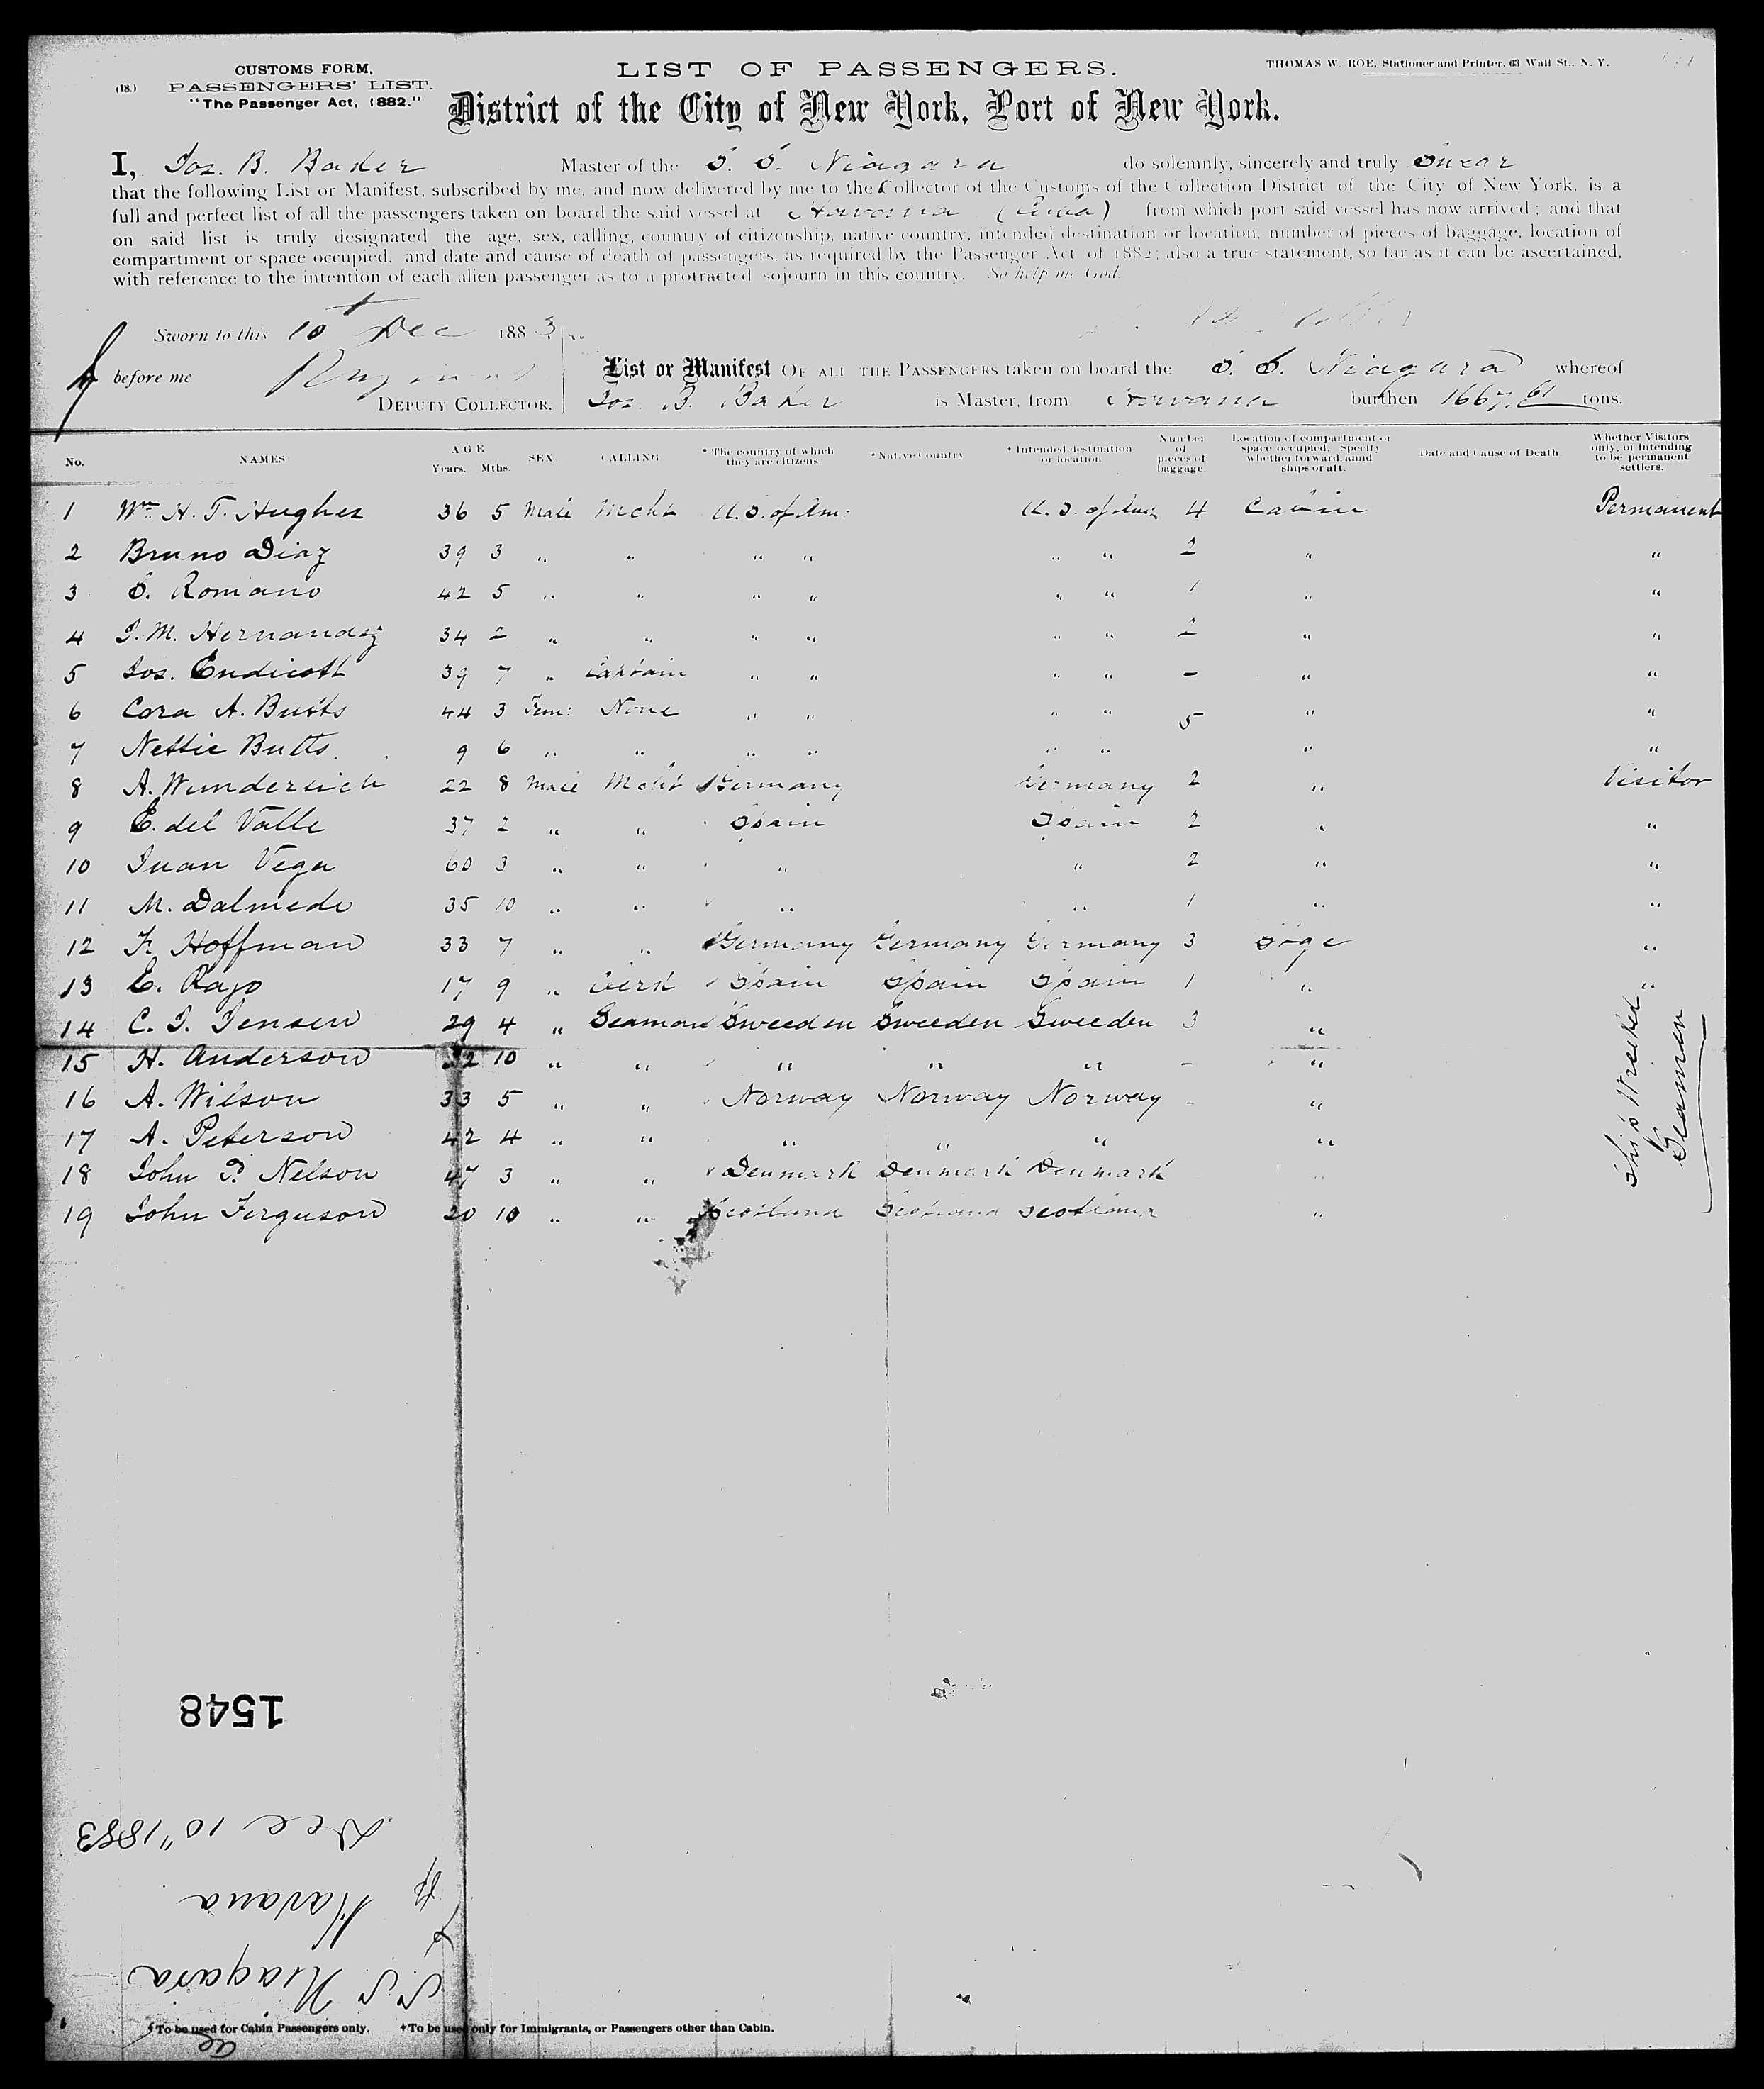 CUSTOMS FORM,
(18.) PASSENGERS' LIST.
"The Passenger Act, 1882."
LIST OF PASSENGERS.
THOMAS W. ROE, Stationer and Printer, 63 Wall St., N. Y.
District of the City of New York, Port of New York.
I, Jos. B. Baker Master of the S. S. Niagara do solemnly, sincerely and truly Swear
that the following List or Manifest, subscribed by me, and now delivered by me to the Collector of the Customs of the Collection District of the City of New York, is a
full and perfect list of all the passengers taken on board the said vessel at Havana (Cuba) from which port said vessel has now arrived; and that
on said list is truly designated the age, sex, calling, country of citizenship, native country, intended destination or location, number of pieces of baggage, location of
compartment or space occupied, and date and cause of death of passengers, as required by the Passenger Act of 1882; also a true statement, so far as it can be ascertained,
with reference to the intention of each alien passenger as to a protracted sojourn in this country. So help me God.
Sworn to this 10 Dec 1883
before me
DEPUTY COLLECTOR.
List or Manifest OF ALL THE PASSENGERS taken on board the S. S. Niagara whereof
Jos. B. Baker is Master, from Havana burthen 1667.61 tons.
No. NAMES AGE Years. Mths. SEX CALLING * The country of which they are citizens. + Native Country + Intended destination or location Number of pieces of baggage. Location of compartment or space occupied. Specify whether forward, amid ships or aft. Date and Cause of Death Whether Visitors only, or intending to be permanent settlers.
1 Wm H. T. Hughes 36 5 Male Mcht U.S. of Am: U. S. of Am: 4 Cabin Permanent
2 Bruno Diaz 39 3 " " " " " " 2 " "
3 S. Romano 42 5 " " " " " " 1 " "
4 J. M. Hernandez 34 2 " " " " " " 2 " "
5 Jos. Endicott 39 7 " Captain " " " " - " "
6 Cora A. Butts 44 3 Fem: None " " " " 5 " "
7 Nettie Butts 9 6 " " " " " " " "
8 A. Wunderlich 22 8 Male Mcht Germany Germany 2 " Visitor
9 E. del Valle 37 2 " " Spain Spain 2 " "
10 Juan Vega 60 3 " " " " 2 " "
11 M. Dalmede 35 10 " " " " 1 " "
12 F. Hoffman 33 7 " " Germany Germany Germany 3 Stge "
13 E. Rayo 17 9 " Clerk Spain Spain Spain 1 " "
14 C. J. Jensen 29 4 " Seaman Sweeden Sweeden Sweeden 3 "
15 H. Anderson 32 10 " " " " " - "
16 A. Wilson 33 5 " " Norway Norway Norway - "
17 A. Peterson 42 4 " " " " " "
18 John P. Nelson 47 3 " " Denmark Denmark Denmark
19 John Ferguson 20 10 " " Scotland Scotland Scotland "
Ship Wrecked
Seamen
1548
Dec 10" 1883
Havana
S. S. Niagara
*To be used for Cabin Passengers only. +To be used only for Immigrants, or Passengers other than Cabin.